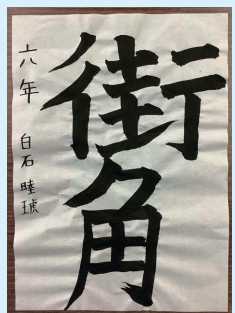 街角
六年 白石 睦琥